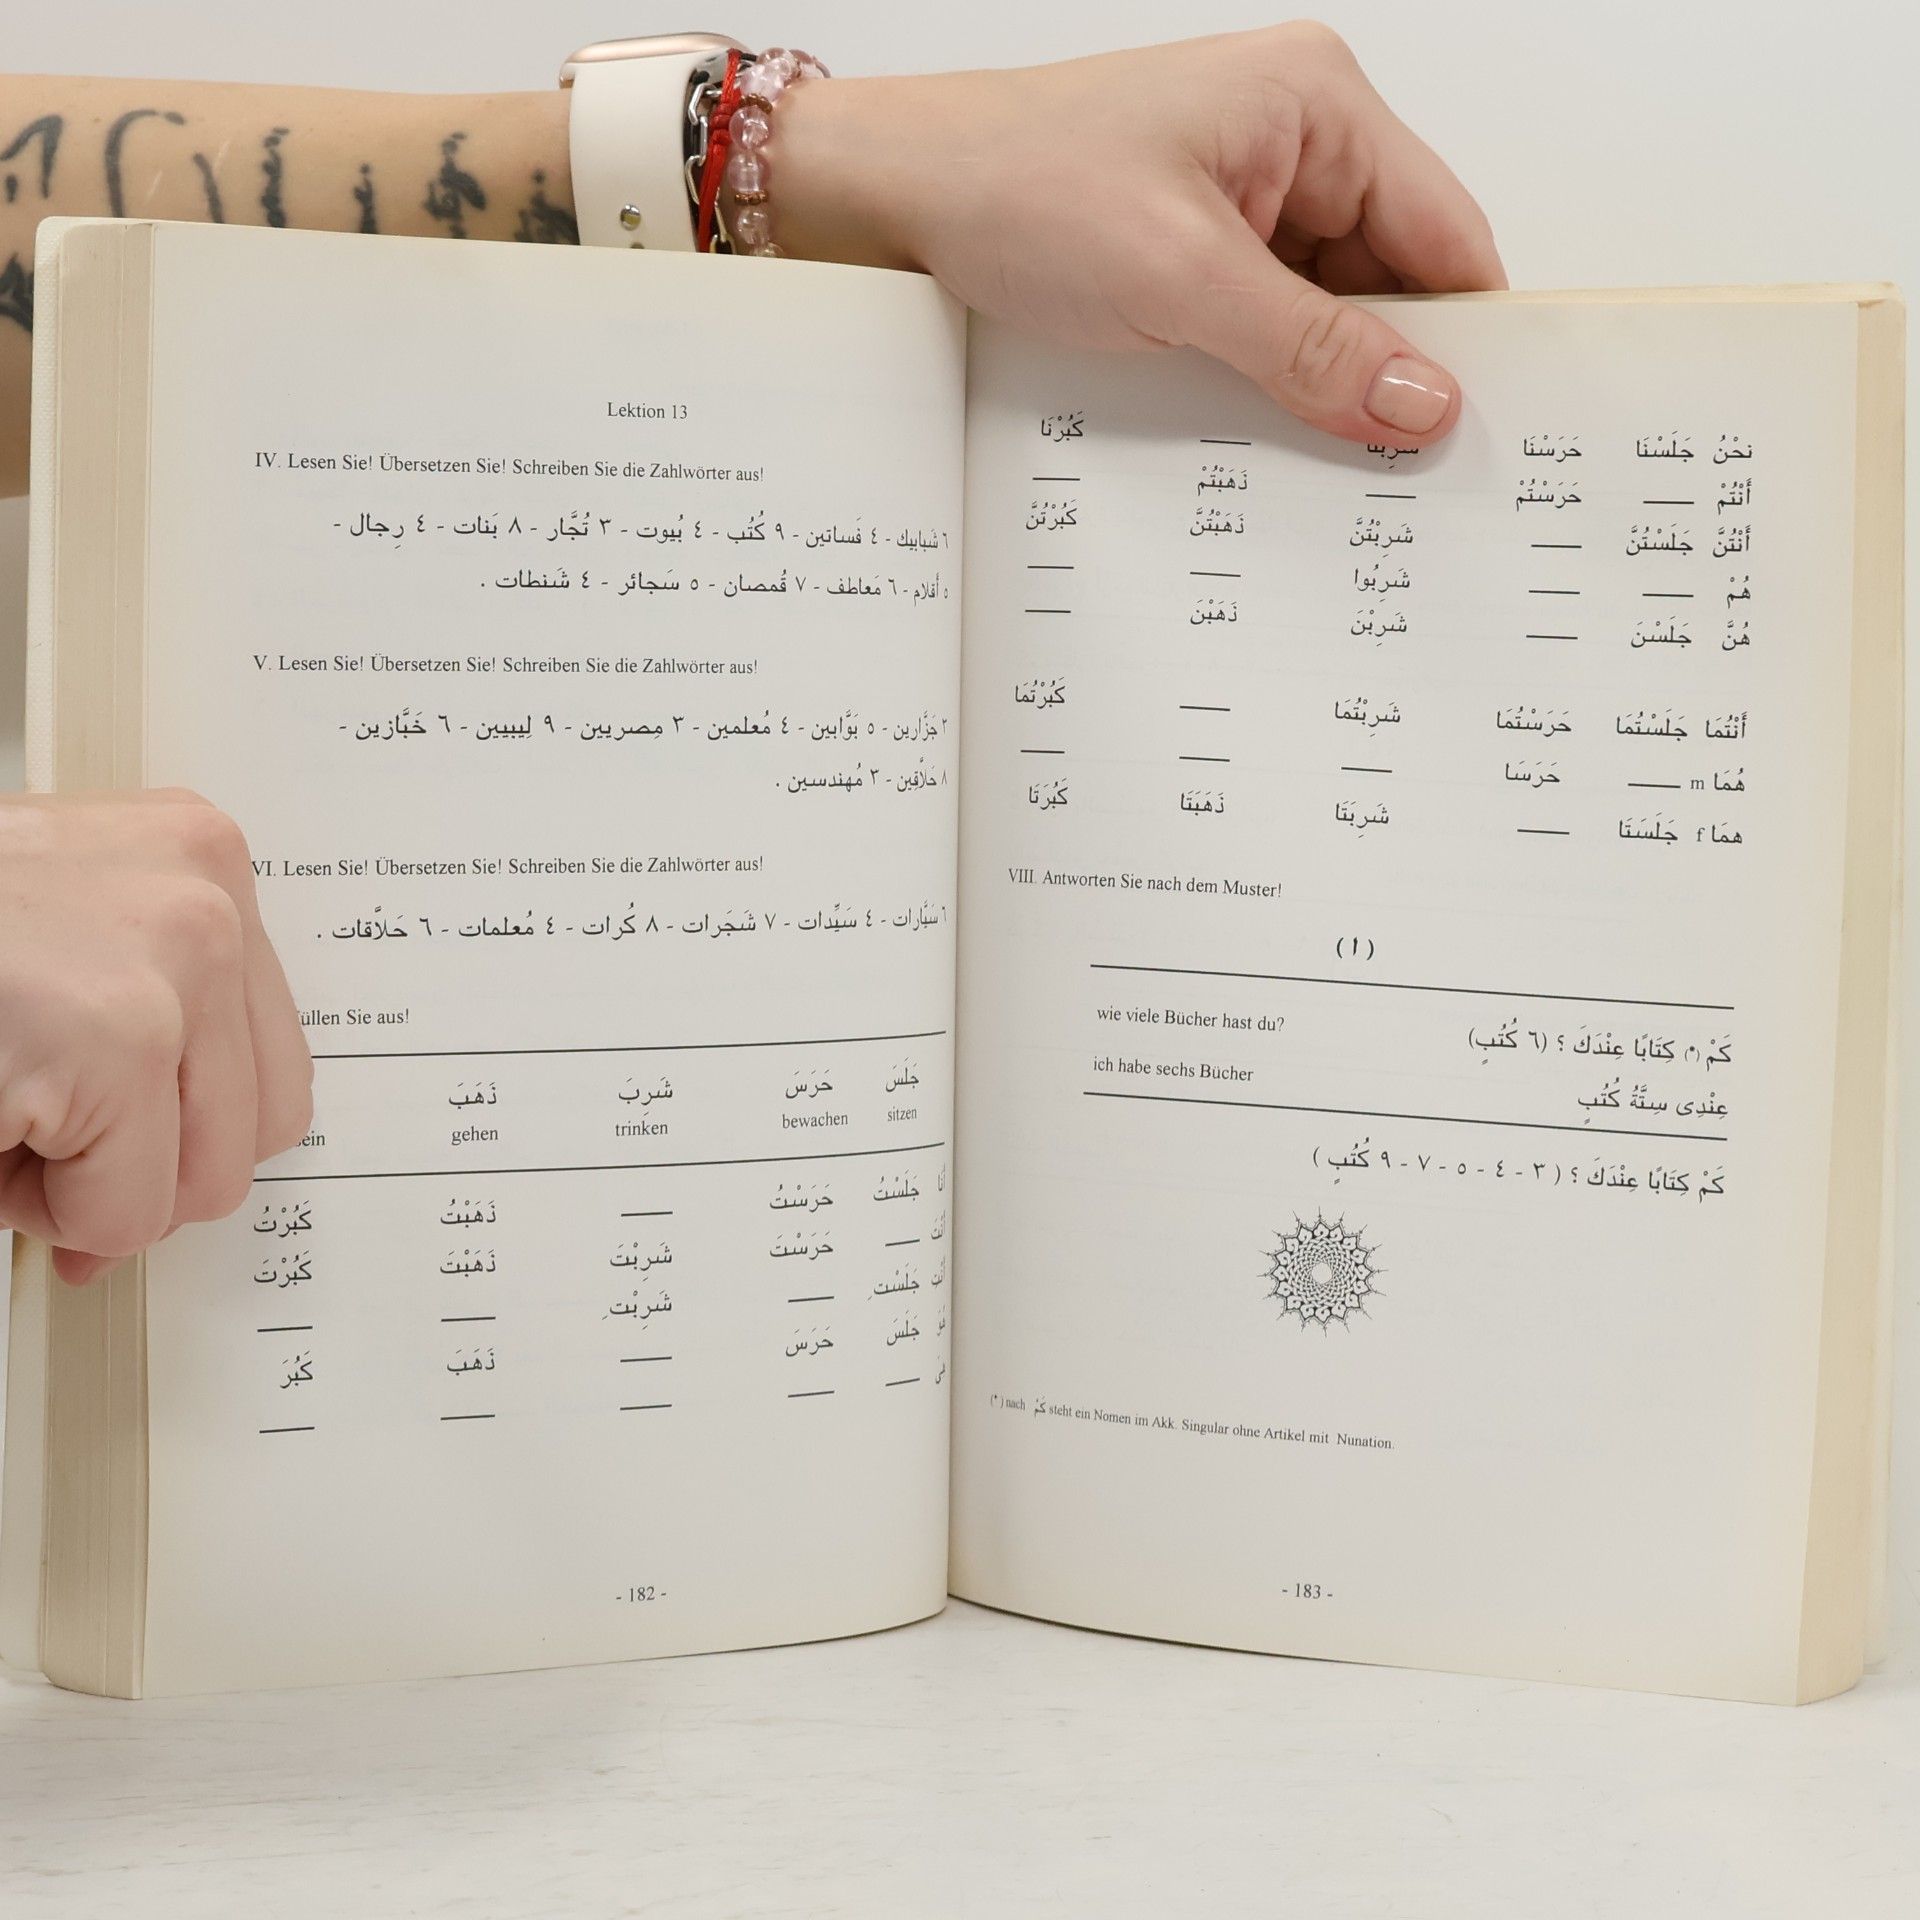 Lektion 13
IV. Lesen Sie! Übersetzen Sie! Schreiben Sie die Zahlwörter aus!
٦ شَبابيك - ٤ فَساتين - ٩ كُتُب - ٤ بُيوت - ٣ تُجَّار - ٨ بَنات - ٤ رِجال -
٥ أَقلام - ٦ مَعاطف - ٧ قُمصان - ٥ سَجائر - ٤ شَنطات .
V. Lesen Sie! Übersetzen Sie! Schreiben Sie die Zahlwörter aus!
جَزَّارين - ٥ بَوَّابين - ٤ مُعلمين - ٣ مِصريين - ٩ لِيبيين - ٦ خَبَّازين -
٨ حَلاَّقِين - ٣ مُهندسين .
VI. Lesen Sie! Übersetzen Sie! Schreiben Sie die Zahlwörter aus!
٦ سَيَّارات - ٤ سَيِّدات - ٧ شَجَرات - ٨ كُرات - ٤ مُعلمات - ٦ حَلاَّقات .
Sie aus!
جَلَسَ حَرَسَ شَرِبَ ذَهَبَ
sitzen bewachen trinken gehen
أَنَا جَلَسْتُ حَرَسْتُ ____ ذَهَبْتُ كَبُرْتُ
____ حَرَسْتَ شَرِبْتَ ذَهَبْتَ كَبُرْتَ
جَلَسْتِ ____ شَرِبْتِ ____ ____
جَلَسَ حَرَسَ ____ ذَهَبَ كَبُرَ
____ ____ ____ ____ ____
- 182 -
نَحْنُ جَلَسْنَا حَرَسْنَا ____ كَبُرْنَا
أَنْتُمْ ____ حَرَسْتُمْ ____ ذَهَبْتُمْ ____
أَنْتُنَّ جَلَسْتُنَّ ____ شَرِبْتُنَّ ذَهَبْتُنَّ كَبُرْتُنَّ
هُمْ ____ ____ شَرِبُوا ____ ____
هُنَّ جَلَسْنَ ____ شَرِبْنَ ذَهَبْنَ ____
أَنْتُمَا جَلَسْتُمَا حَرَسْتُمَا شَرِبْتُمَا ____ كَبُرْتُمَا
هُمَا m ____ حَرَسَا ____ ____ ____
همَا f جَلَسَتَا ____ شَرِبَتَا ذَهَبَتَا كَبُرَتَا
VIII. Antworten Sie nach dem Muster!
( ا )
كَمْ (*) كِتَابًا عِنْدَكَ ؟ (٦ كُتُبٍ) wie viele Bücher hast du?
عِنْدِى سِتَّةُ كُتُبٍ ich habe sechs Bücher
كَمْ كِتَابًا عِنْدَكَ ؟ ( ٣ - ٤ - ٥ - ٧ - ٩ كُتُبٍ )
(*) nach كَمْ steht ein Nomen im Akk. Singular ohne Artikel mit Nunation.
- 183 -